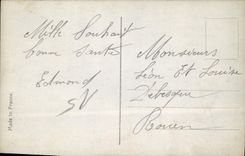 Mille Souhait
bonne santé
Edmond
SV
Monsieurs
Léon Et Louise
Debesque
Rouen
Made in France.